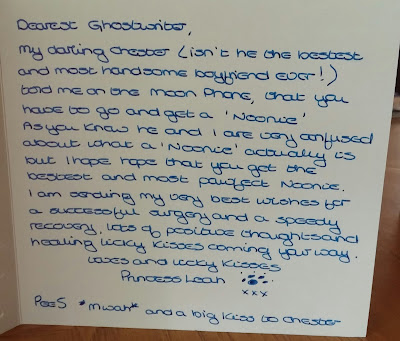 Dearest Ghostwriter,
My darling Chester (isn't he the bestest
and most handsome boyfriend ever!)
told me on the moon phone, that you
have to go and get a 'Noonie'
As you know he and I are very confused
about what a 'Noonie' actually is
but I hope hope that you get the
bestest and most pawfect Noonie.
I am sending my very best wishes for
a successful surgery and a speedy
recovery, lots of positive thoughts and
healing licky kisses coming your way.
Loves and licky kisses
Princess Leah
x x x
PeeS *mwah* and a big kiss to Chester